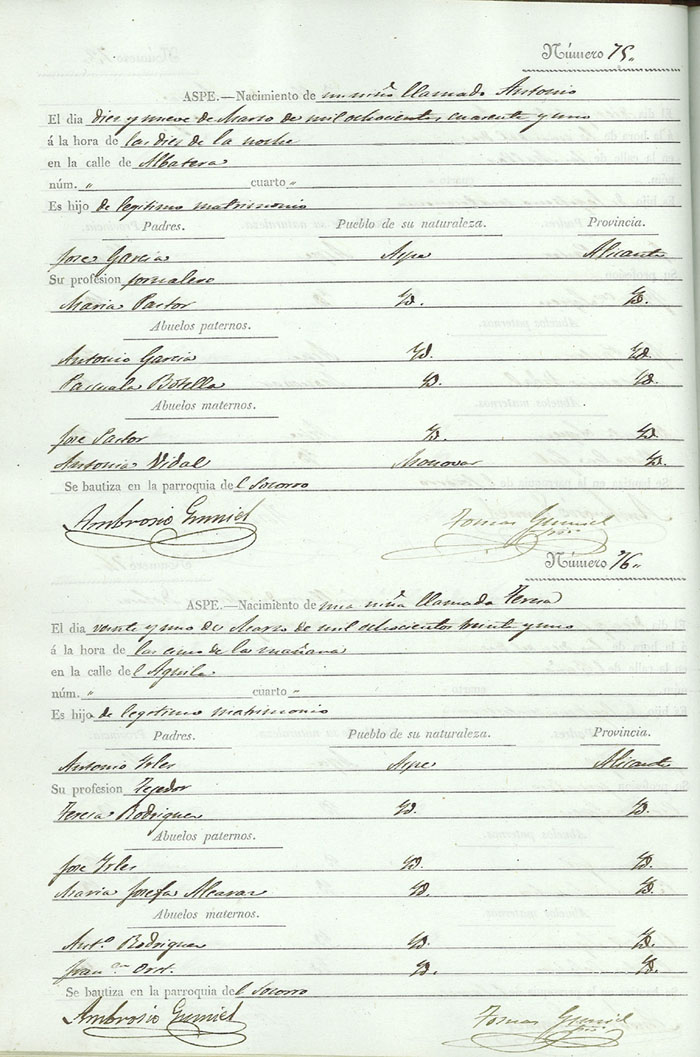 Número 75„
ASPE.—Nacimiento de un niño llamado Antonio
El dia diez y nueve de Marzo de mil ochocientos cuarenta y uno
á la hora de las diez de la noche
en la calle de Albatera
núm. „ cuarto „
Es hijo de legitimo matrimonio
Padres. Pueblo de su naturaleza. Provincia.
Jose Garcia Aspe Alicante
Su profesion jornalero
Maria Pastor Yd. Yd.
Abuelos paternos.
Antonio Garcia Yd. Yd.
Pascuala Botella Yd. Yd.
Abuelos maternos.
Jose Pastor Yd. Yd.
Antonia Vidal Monovar Yd.
Se bautiza en la parroquia del Socorro
Ambrosio Gumiel Tomas Gumiel
Número 76„
ASPE.—Nacimiento de una niña llamada Teresa
El dia veinte y uno de Marzo de mil ochocientos treinta y uno
á la hora de las cinco de la mañana
en la calle del Aguila
núm. „ cuarto „
Es hijo de legitimo matrimonio
Padres. Pueblo de su naturaleza. Provincia.
Antonio Yrles Aspe Alicante
Su profesion Tejedor
Teresa Rodriguez Yd. Yd.
Abuelos paternos.
Jose Yrles Yd. Yd.
Maria Josefa Alcaraz Yd. Yd.
Abuelos maternos.
Ant.º Rodriguez Yd. Yd.
Fran.ca Yd. Yd.
Se bautiza en la parroquia del Socorro
Ambrosio Gumiel Tomas Gumiel